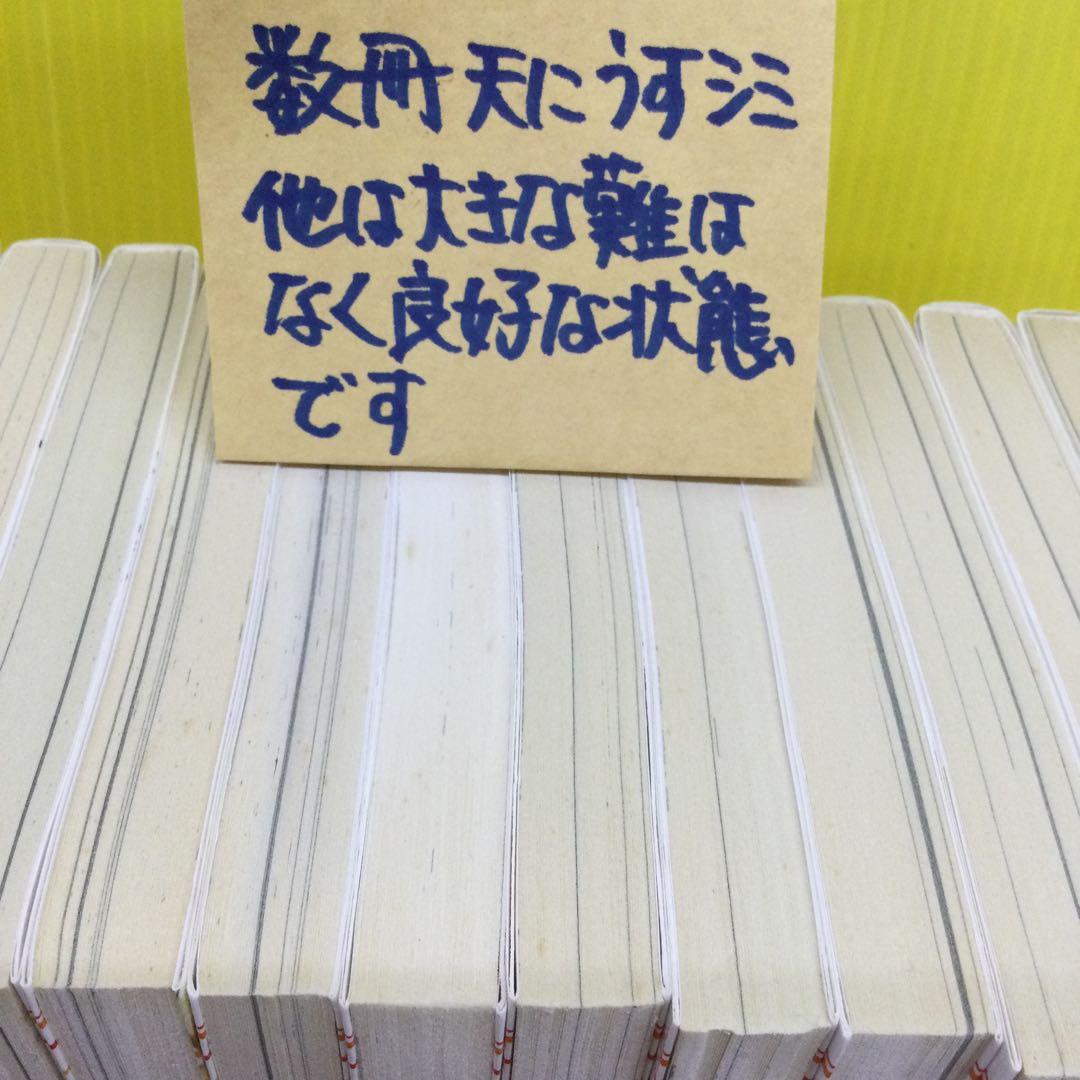 数冊 天にうすシミ
他は大きな難は
なく良好な状態
です